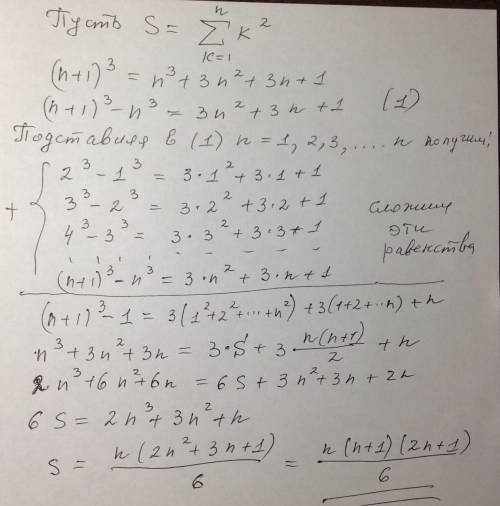 Пусть S = ∑_{k=1}^{n} k²
(n+1)³ = n³ + 3n² + 3n + 1
(n+1)³ - n³ = 3n² + 3n + 1 (1)
Подставляя в (1) n = 1, 2, 3, .... n получим:
2³ - 1³ = 3·1² + 3·1 + 1
+ { 3³ - 2³ = 3·2² + 3·2 + 1 сложим
4³ - 3³ = 3·3² + 3·3 + 1 эти
равенства
(n+1)³ - n³ = 3·n² + 3·n + 1
(n+1)³ - 1 = 3(1² + 2² + ... + n²) + 3(1+2+..n) + n
n³ + 3n² + 3n = 3·S + 3·n(n+1)/2 + n
2n³ + 6n² + 6n = 6S + 3n² + 3n + 2n
6S = 2n³ + 3n² + n
S = n(2n² + 3n + 1)/6 = n(n+1)(2n+1)/6